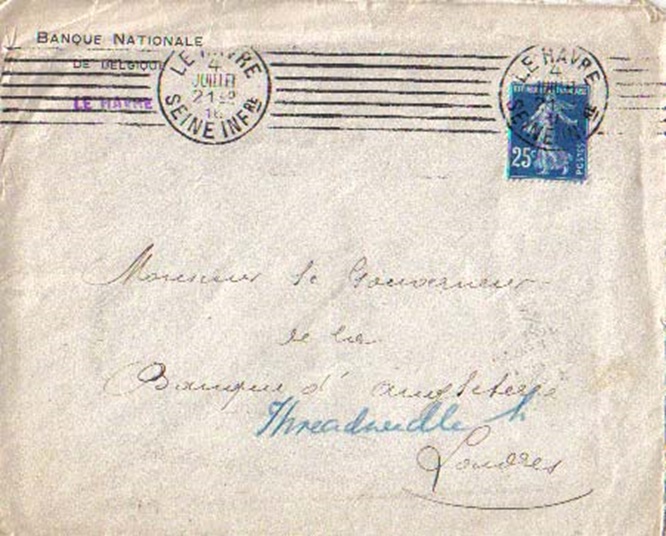 BANQUE NATIONALE
DE BELGIQUE
LE HAVRE
LE HAVRE
4
JUILLET
21
16
SEINE INFRE
LE HAVRE
4
SEINE INFRE
25c
POSTES
Monsieur le Gouverneur
de la
Banque d'Angleterre
Threadneedle St
Londres